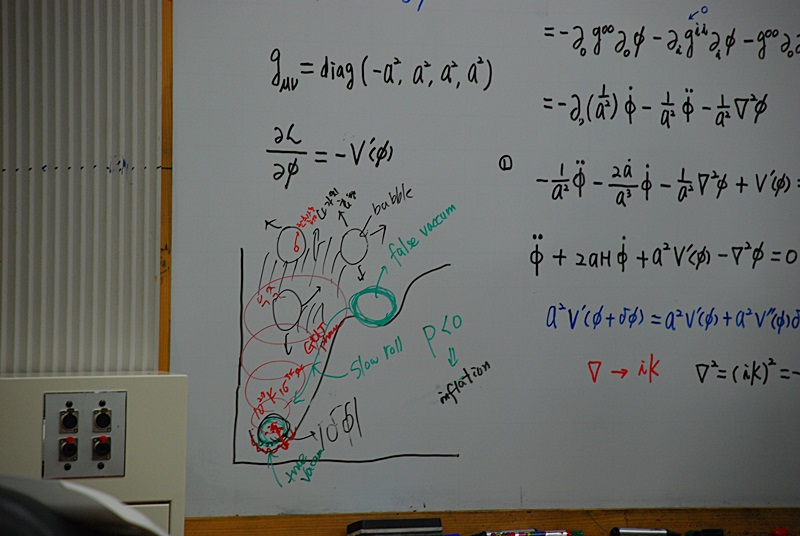 g_μν = diag(-a², a², a², a²)
∂L/∂φ = -V'(φ)
bubble
false vaccum
slow roll
P<0
⇓
inflation
|δφ|
0
= -∂₀g⁰⁰∂₀φ - ∂ᵢgⁱⁱ∂ᵢφ - g⁰⁰∂₀
= -∂₀(1/a²)φ̇ - 1/a² φ̈ - 1/a² ∇²φ
① -1/a² φ̈ - 2ȧ/a³ φ̇ - 1/a² ∇²φ + V'(φ) =
φ̈ + 2aHφ̇ + a²V'(φ) - ∇²φ = 0
a²V'(φ+δφ) = a²V'(φ) + a²V''(φ)δ
∇ → ik ∇² = (ik)² = -